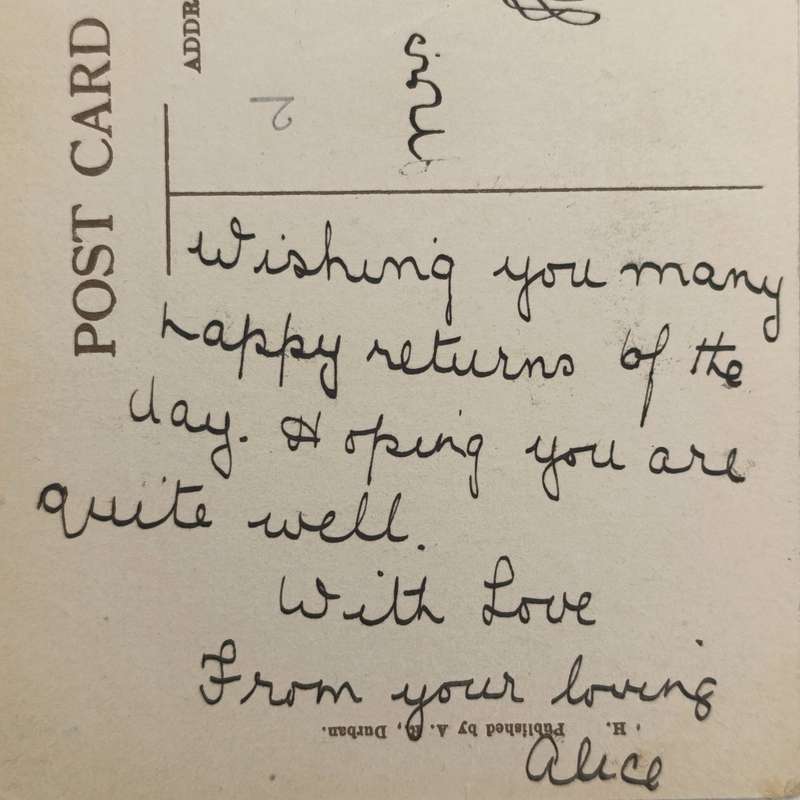 POST CARD
ADDR
2
Mrs.
Wishing you many
happy returns of the
day. Hoping you are
quite well.
With Love
From your loving
Alice
H. Published by A. R., Durban.